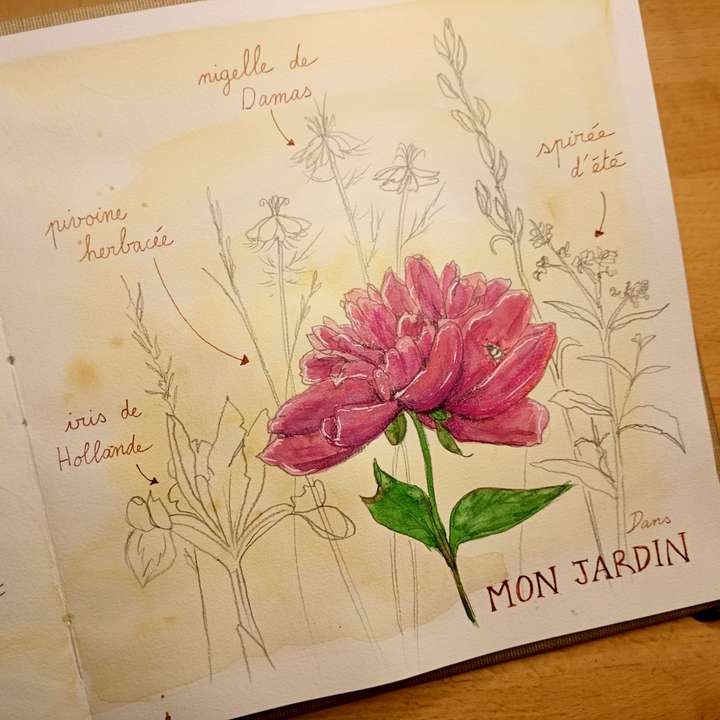 nigelle de
Damas
spirée
d'été
pivoine
herbacée
iris de
Hollande
Dans
MON JARDIN